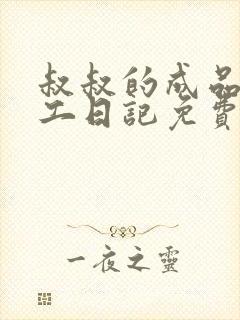 叔叔的成品
工日記免費
一夜之靈